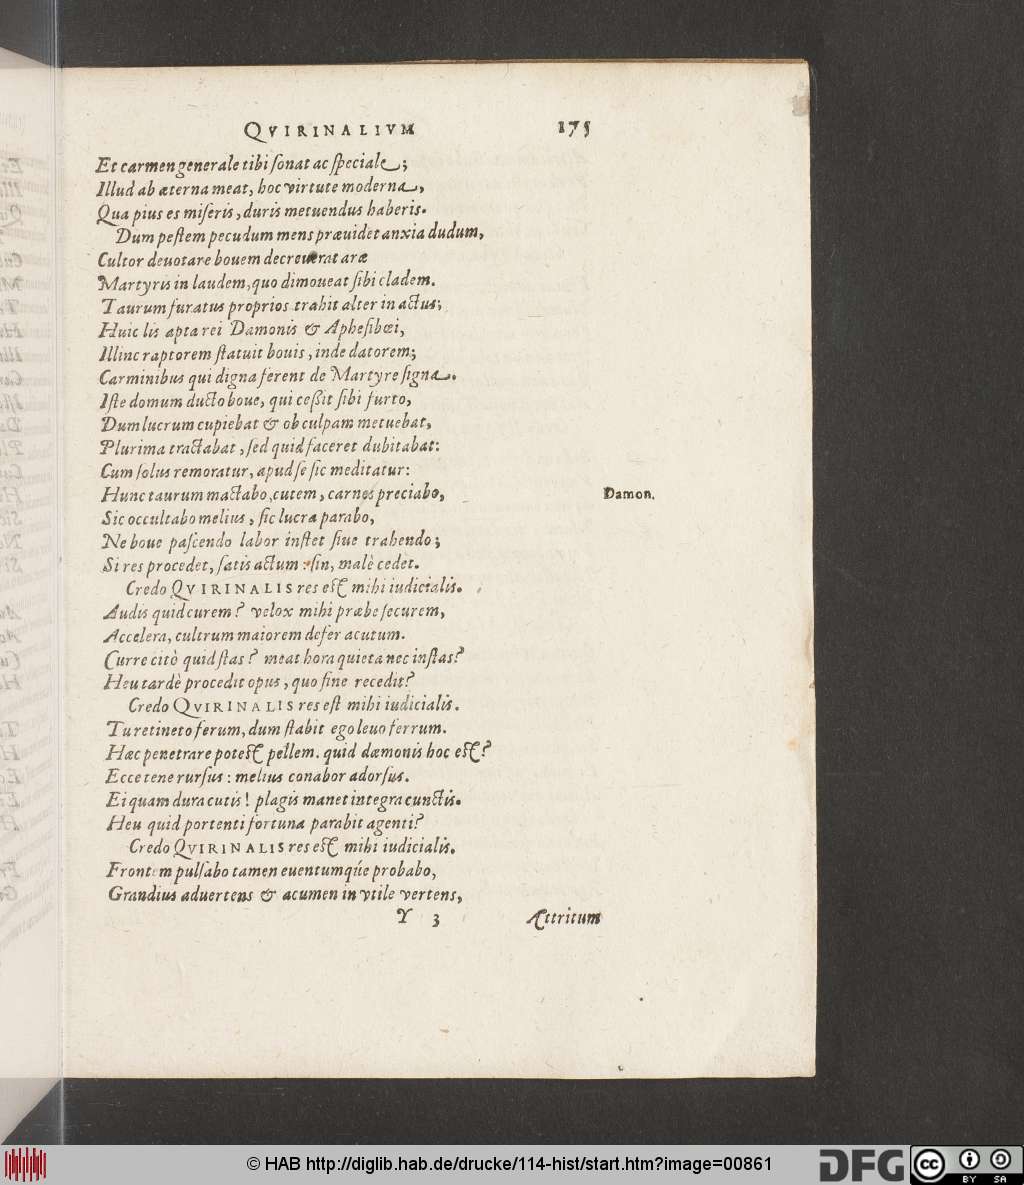 QVIRINALIVM 175
Et carmen generale tibi ſonat ac ſpeciale;
Illud ab æterna meat, hoc virtute moderna,
Qua pius es miſeris, duris metuendus haberis.
Dum peſtem pecudum mens præuidet anxia dudum,
Cultor deuotare bouem decreuerat aræ
Martyris in laudem, quo dimoueat ſibi cladem.
Taurum furatus proprios trahit alter in actus;
Huic lis apta rei Damonis & Apheſibœi,
Illinc raptorem ſtatuit bouis, inde datorem;
Carminibus qui digna ferent de Martyre ſigna.
Iſte domum ducto boue, qui ceßit ſibi furto,
Dum lucrum cupiebat & ob culpam metuebat,
Plurima tractabat, ſed quid faceret dubitabat:
Cum ſolus remoratur, apud ſe ſic meditatur:
Hunc taurum mactabo, cutem, carnes preciabo, Damon.
Sic occultabo melius, ſic lucra parabo,
Ne boue paſcendo labor inſtet ſiue trahendo;
Si res procedet, ſatis actum: ſin, malè cedet.
Credo QVIRINALIS res eſt mihi iudicialis.
Audis quid curem? velox mihi præbe ſecurem,
Accelera, cultrum maiorem defer acutum.
Curre citò quid ſtas? meat hora quieta nec inſtas?
Heu tardè procedit opus, quo fine recedit?
Credo QVIRINALIS res eſt mihi iudicialis.
Tu retineto ferum, dum ſtabit ego leuo ferrum.
Hæc penetrare poteſt pellem. quid dæmonis hoc eſt?
Ecce tene rurſus: melius conabor adorſus.
Ei quam dura cutis! plagis manet integra cunctis.
Heu quid portenti fortuna parabit agenti?
Credo QVIRINALIS res eſt mihi iudicialis.
Frontem pulſabo tamen euentumq́ue probabo,
Grandius aduertens & acumen in vtile vertens,
Y 3 Attritum
© HAB http://diglib.hab.de/drucke/114-hist/start.htm?image=00861
DFG
cc
BY SA